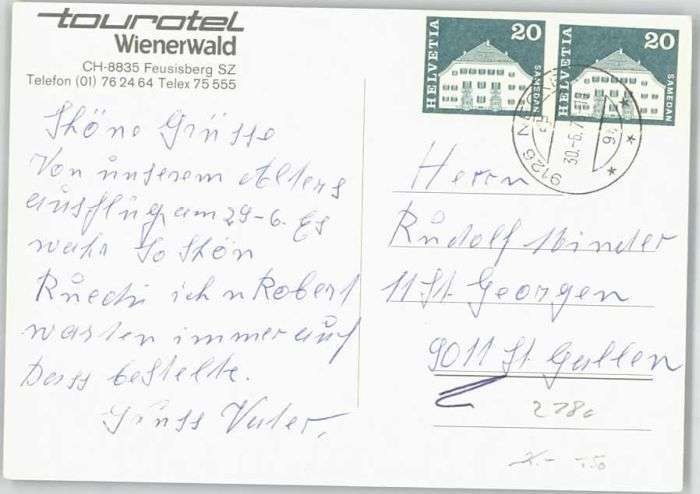 tourotel
Wienerwald
CH-8835 Feusisberg SZ
Telefon (01) 76 24 64 Telex 75 555
Shöne Grüsse
Von unserem Alters
ausflug am 29-6. Es
wahr So Shön
Ruedi ich u Robert
warten immer auf
Dass bestellte.
Gruss Vater,
HELVETIA 20 SAMEDAN
HELVETIA 20 SAMEDAN
9126
30.-6.7
Herrn
Rudolf Minder
11 St. Georgen
9011 St Gallen